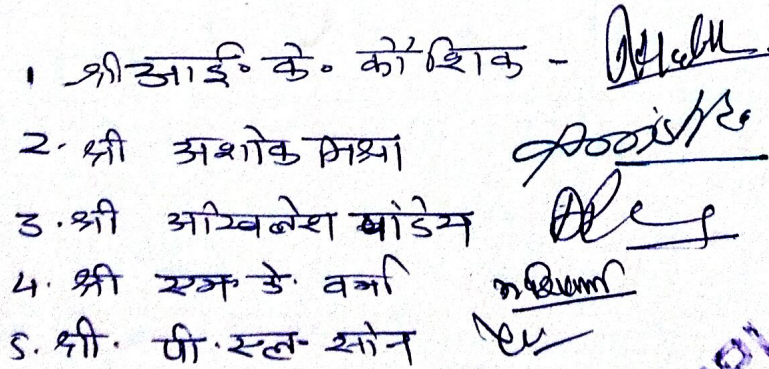 1 श्री आई. के. कौशिक -
2. श्री अशोक मिश्रा
3. श्री अखिलेश पांडेय
4. श्री एम के. वर्मा
5. श्री. पी. एल. सोन